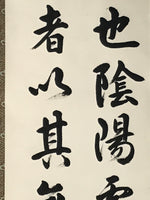 也陰陽
者以其